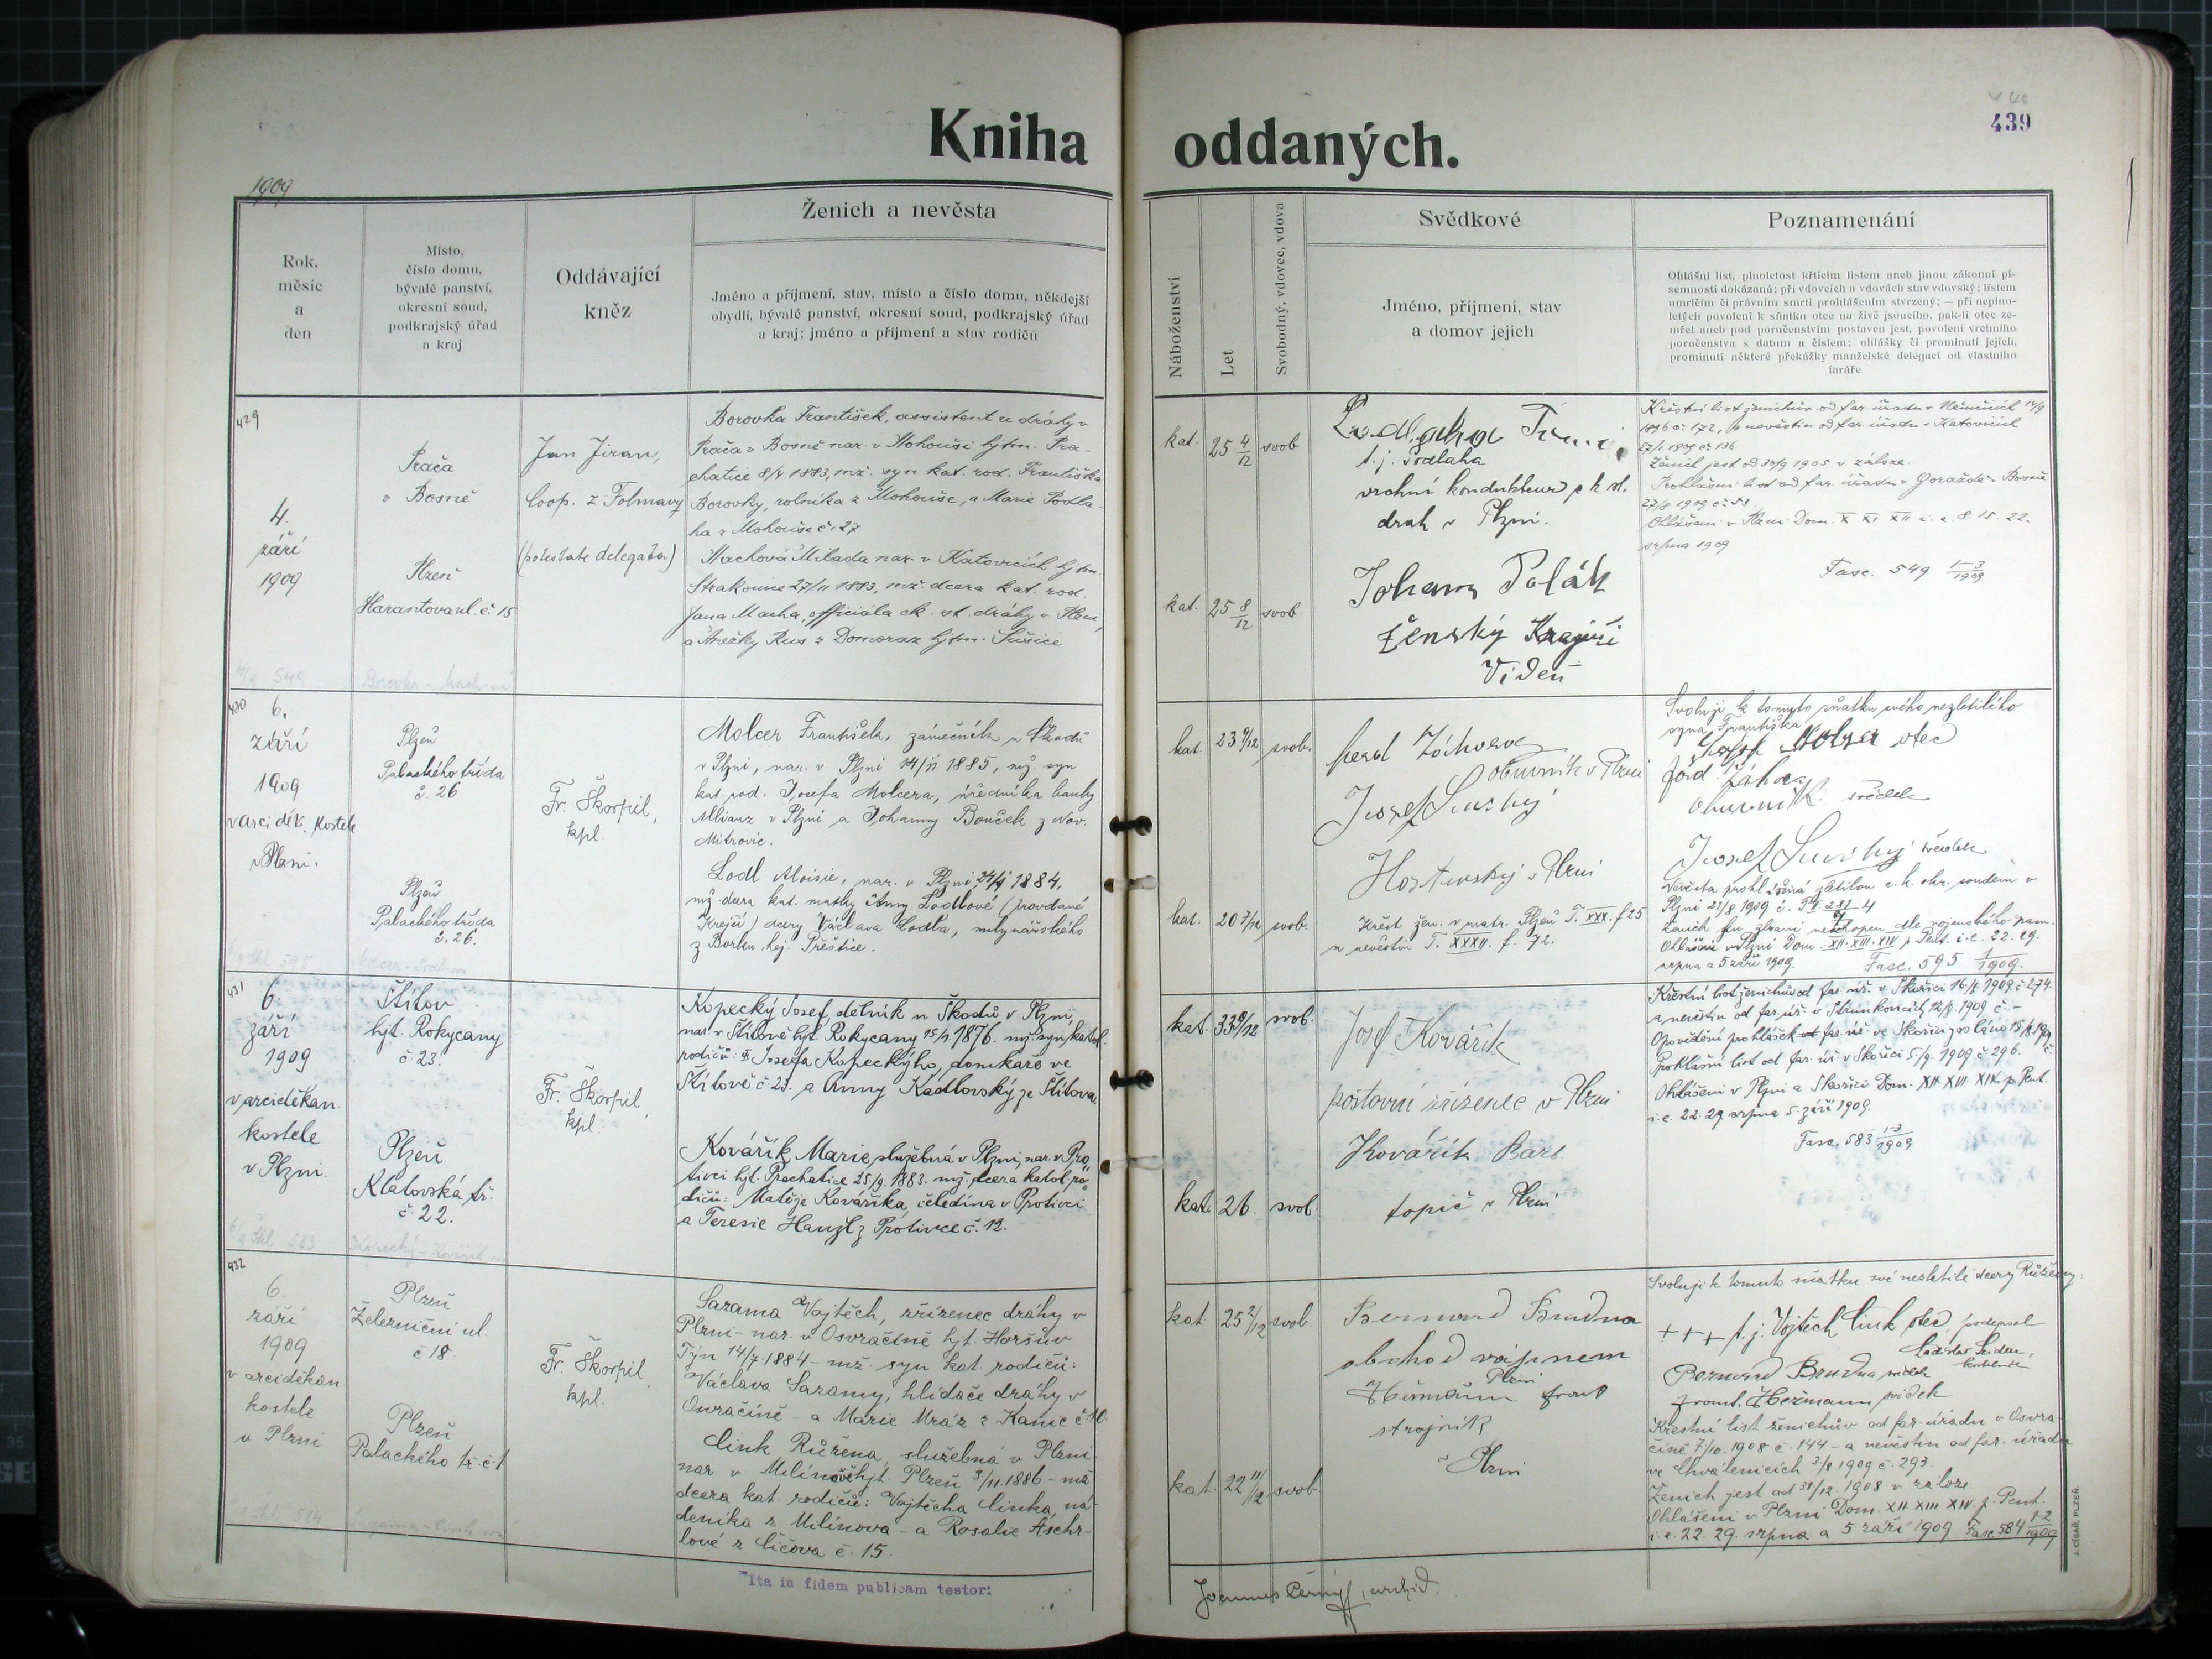 Kniha oddaných.
439
1909
Rok,
měsíc
a
den
Místo,
číslo domu,
bývalé panství,
okresní soud,
podkrajský úřad
a kraj
Oddávající
kněz
Ženich a nevěsta
Jméno a příjmení, stav, místo a číslo domu, někdejší
obydlí, bývalé panství, okresní soud, podkrajský úřad
a kraj; jméno a příjmení a stav rodičů
Náboženství
Let
Svobodný, vdovec, vdova
Svědkové
Jméno, příjmení, stav
a domov jejich
Poznamenání
Ohlášní list, plnoletost křticím listem aneb jinou zákonní pí-
semností dokázaná; při vdovcích a vdovách stav vdovský; listem
umrlčím či právním smrti prohlášením stvrzený; — při neplno-
letých povolení k sňatku otce na živě jsoucího, pak-li otec ze-
mřel aneb pod poručenstvím postaven jest, povolení vrchního
poručenstva s datum a číslem; ohlášky či prominutí jejich,
prominutí některé překážky manželské delegací od vlastního
faráře
429
4.
září
1909
Prača
v Bosně
Plzeň
Harantova ul. č. 15
Jan Jiran,
Coop. z Folmavy
(potestate delegata)
Borovka František, assistent u dráhy v
Prača v Bosně nar. v Mohouši hjtm. Pra-
chatice 8/4 1883, mž. syn kat. rod. Františka
Borovky, rolníka z Mohouše, a Marie Podla-
ha z Mohouše č. 27
Machová Milada nar. v Katovicích hjtm.
Strakonice 27/11 1883, mž. dcera kat. rod.
Jana Macha, officiála ck. st. dráhy v Plzni,
a Anežky Rus z Domoraz hjtm. Sušice
kat. 25 4/12 svob
kat. 25 8/12 svob.
t. j. Podlaha
vrchní kondukteur c k st.
drah v Plzni.
Johann Polák
ženský Krejčí
Videň
Křestní list ženichův od far. úřadu v Němčicích 14/9
1896 č. 172, a nevěstin od far. úřadu v Katovicích
27/1 1909 č. 136
Ženich jest od 30/9 1905 v záloze.
Prohlášní list od far. úřadu v Goražde v Bosně
27/8 1909 č. 53
Ohlášeni v Plzni Dom. X XI XII i. e. 8. 15. 22.
srpna 1909
Fasc. 549 1-3/1909
430
6.
září
1909
v arciděk. kostele
v Plzni.
Plzeň
Palackého třída
č. 26
Plzeň
Palackého třída
č. 26.
Fr. Škorpil,
kpl.
Molcer František, zámečník u Škodů
v Plzni, nar. v Plzni 14/11 1885, mž. syn
kat. rod. Josefa Molcera, úředníka banky
Allianz v Plzni a Johanny Bouček z Nov.
Mitrovic.
Lodl Aloisie, nar. v Plzni 24/1 1884,
mž. dcera kat. matky Anny Lodlové (provdané
Krejčí) dcery Václava Lodla, mlynářského
z Borku, hej. Přeštice.
kat. 23 9/12 svob.
kat. 20 7/12 svob.
Obuvník v Plzni
Hostinský v Plzni
Křest žen. v matr. Plzeň T. XXX. f 25
a nevěstin T. XXXII. f. 72.
Svoluji k tomuto sňatku svého nezletilého
syna Františka
Josef Molzer otec
Ferd. Záhora
obuvník svědek
svědek
Nevěsta prohlášená zletilou c. k. okr. soudem v
Plzni 21/8 1909 č. P II 281/4
Ženich ku zbrani neschopen dle vojenského pam.
Ohlášeni v Plzni Dom. XII. XIII. XIV p Pent. i. e. 22. 29.
srpna a 5 září 1909. Fasc. 595 1/1909.
431
6.
září
1909
v arciděkan.
kostele
v Plzni.
Štítov
hjt. Rokycany
č. 23.
Plzeň
Klatovská tř.
č. 22.
Fr. Škorpil,
kpl.
Kopecký Josef, dělník u Škodů v Plzni,
nar. v Štítově hjt. Rokycany 15/1 1876. mž. syn katol.
rodičů: Josefa Kopeckýho, domkáře ve
Štítově č. 23. a Anny Kadlovský ze Štítova.
Kovářík Marie, služebná v Plzni, nar. v Pro-
tivci hjt. Prachatice 25/9. 1883. mž. dcera katol. ro-
dičů: Matěje Kováříka, čeledína v Protivci
a Teresie Hanzl z Protivce č. 12.
kat. 33 8/12 svob.
kat. 26. svob.
Josef Kovářík
poštovní zřízenec v Plzni
Kovářík Karl
topič v Plzni
Křestní list ženichův od far. úř. v Skořici 16/8. 1909. č. 274.
a nevěstin od far. úř. v Strunkovicích 12/8. 1909 č. -
Prohlášní list od far. úř. v Skořici 5/9. 1909 č. 296.
Ohlášeni v Plzni a Skořici Dom. XII XIII XIV. p. Pent.
i. e. 22. 29 srpna 5. září 1909.
Fasc. 583 1-3/1909
432
6.
září
1909
v arciděkan.
kostele
v Plzni
Plzeň
Železniční ul.
č 18.
Plzeň
Palackého tř. č. 1
Fr. Škorpil,
kpl.
Sazama Vojtěch, zřízenec dráhy v
Plzni - nar. v Osvračíně hjt. Horšův
Týn 14/7 1884 - mž. syn kat. rodičů:
Václava Sazamy, hlídače dráhy v
Osvračíně - a Marie Mráz z Kanic č. 10.
Cink Růžena, služebná v Plzni
nar. v Milínově hjt. Plzeň 3/11. 1886 - mž.
dcera kat. rodičů: Vojtěcha Cinka, ná-
deníka z Milínova - a Rosalie Aschr-
lové z Číčova č. 15.
kat 25 2/12 svob
kat. 22 11/12 svob.
Bernard Brudna
obchod vápnem
Plzni
strojník
v Plzni
Svoluji k tomuto sňatku své nezletilé dcery Růženy:
+++ t. j. Vojtěch Cink otec, podepsal
Bernard Brudna svědek
svědek
Křestní list ženichův od far. úřadu v Osvra-
číně 7/10. 1908 č. 144 - a nevěstin od far. úřadu
ve Chválenicích 3/8 1909 č. 293.
Ženich jest od 31/12. 1908 v záloze.
Ohlášeni v Plzni Dom. XII XIII XIV. p. Pent.
i. e. 22. 29. srpna a 5. září 1909 Fasc 584 1-2/1909
Ita in fidem publicam testor:
Joannes Černý, archid.
J. CÍSAŘ, PLZEŇ.